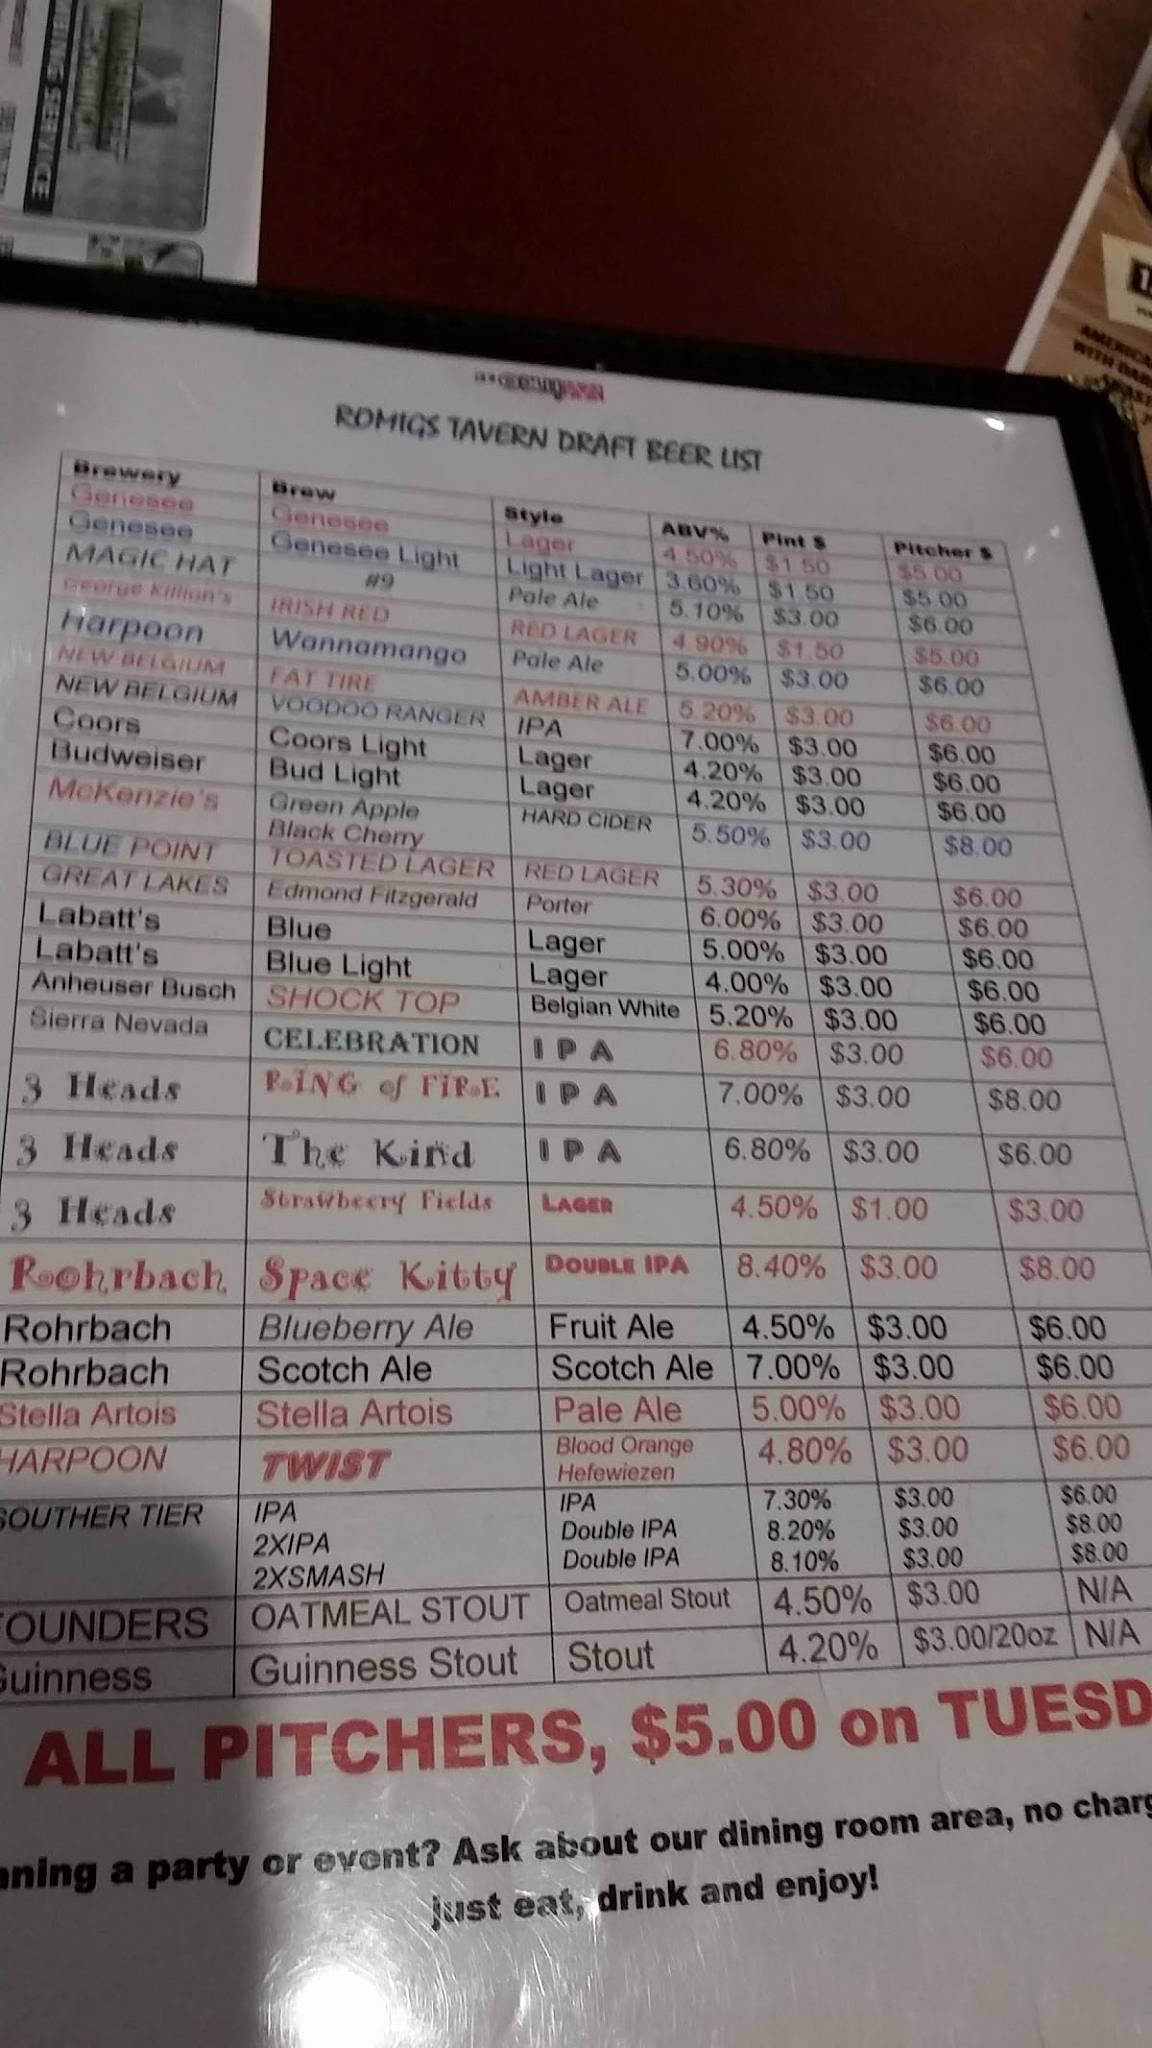 ROMIGS TAVERN DRAFT BEER LIST
Brewery Brew Style ABV% Pint $ Pitcher $
Genesee Genesee Lager 4.50% $1.50 $5.00
Genesee Genesee Light Light Lager 3.60% $1.50 $5.00
MAGIC HAT #9 Pale Ale 5.10% $3.00 $6.00
George Killian's IRISH RED RED LAGER 4.90% $1.50 $5.00
Harpoon Wannamango Pale Ale 5.00% $3.00 $6.00
NEW BELGIUM FAT TIRE AMBER ALE 5.20% $3.00 $6.00
NEW BELGIUM VOODOO RANGER IPA 7.00% $3.00 $6.00
Coors Coors Light Lager 4.20% $3.00 $6.00
Budweiser Bud Light Lager 4.20% $3.00 $6.00
McKenzie's Green Apple HARD CIDER 5.50% $3.00 $8.00
Black Cherry
BLUE POINT TOASTED LAGER RED LAGER 5.30% $3.00 $6.00
GREAT LAKES Edmond Fitzgerald Porter 6.00% $3.00 $6.00
Labatt's Blue Lager 5.00% $3.00 $6.00
Labatt's Blue Light Lager 4.00% $3.00 $6.00
Anheuser Busch SHOCK TOP Belgian White 5.20% $3.00 $6.00
Sierra Nevada CELEBRATION IPA 6.80% $3.00 $6.00
3 Heads RiNG of FiRE IPA 7.00% $3.00 $8.00
3 Heads The Kind IPA 6.80% $3.00 $6.00
3 Heads Strawbeery Fields LAGER 4.50% $1.00 $3.00
Rohrbach Space Kitty DOUBLE IPA 8.40% $3.00 $8.00
Rohrbach Blueberry Ale Fruit Ale 4.50% $3.00 $6.00
Rohrbach Scotch Ale Scotch Ale 7.00% $3.00 $6.00
Stella Artois Stella Artois Pale Ale 5.00% $3.00 $6.00
HARPOON TWIST Blood Orange 4.80% $3.00 $6.00
Hefewiezen
SOUTHER TIER IPA IPA 7.30% $3.00 $6.00
2XIPA Double IPA 8.20% $3.00 $8.00
2XSMASH Double IPA 8.10% $3.00 $8.00
FOUNDERS OATMEAL STOUT Oatmeal Stout 4.50% $3.00 N/A
Guinness Guinness Stout Stout 4.20% $3.00/20oz N/A
ALL PITCHERS, $5.00 on TUESD
nning a party or event? Ask about our dining room area, no charg
just eat, drink and enjoy!
AMERICA